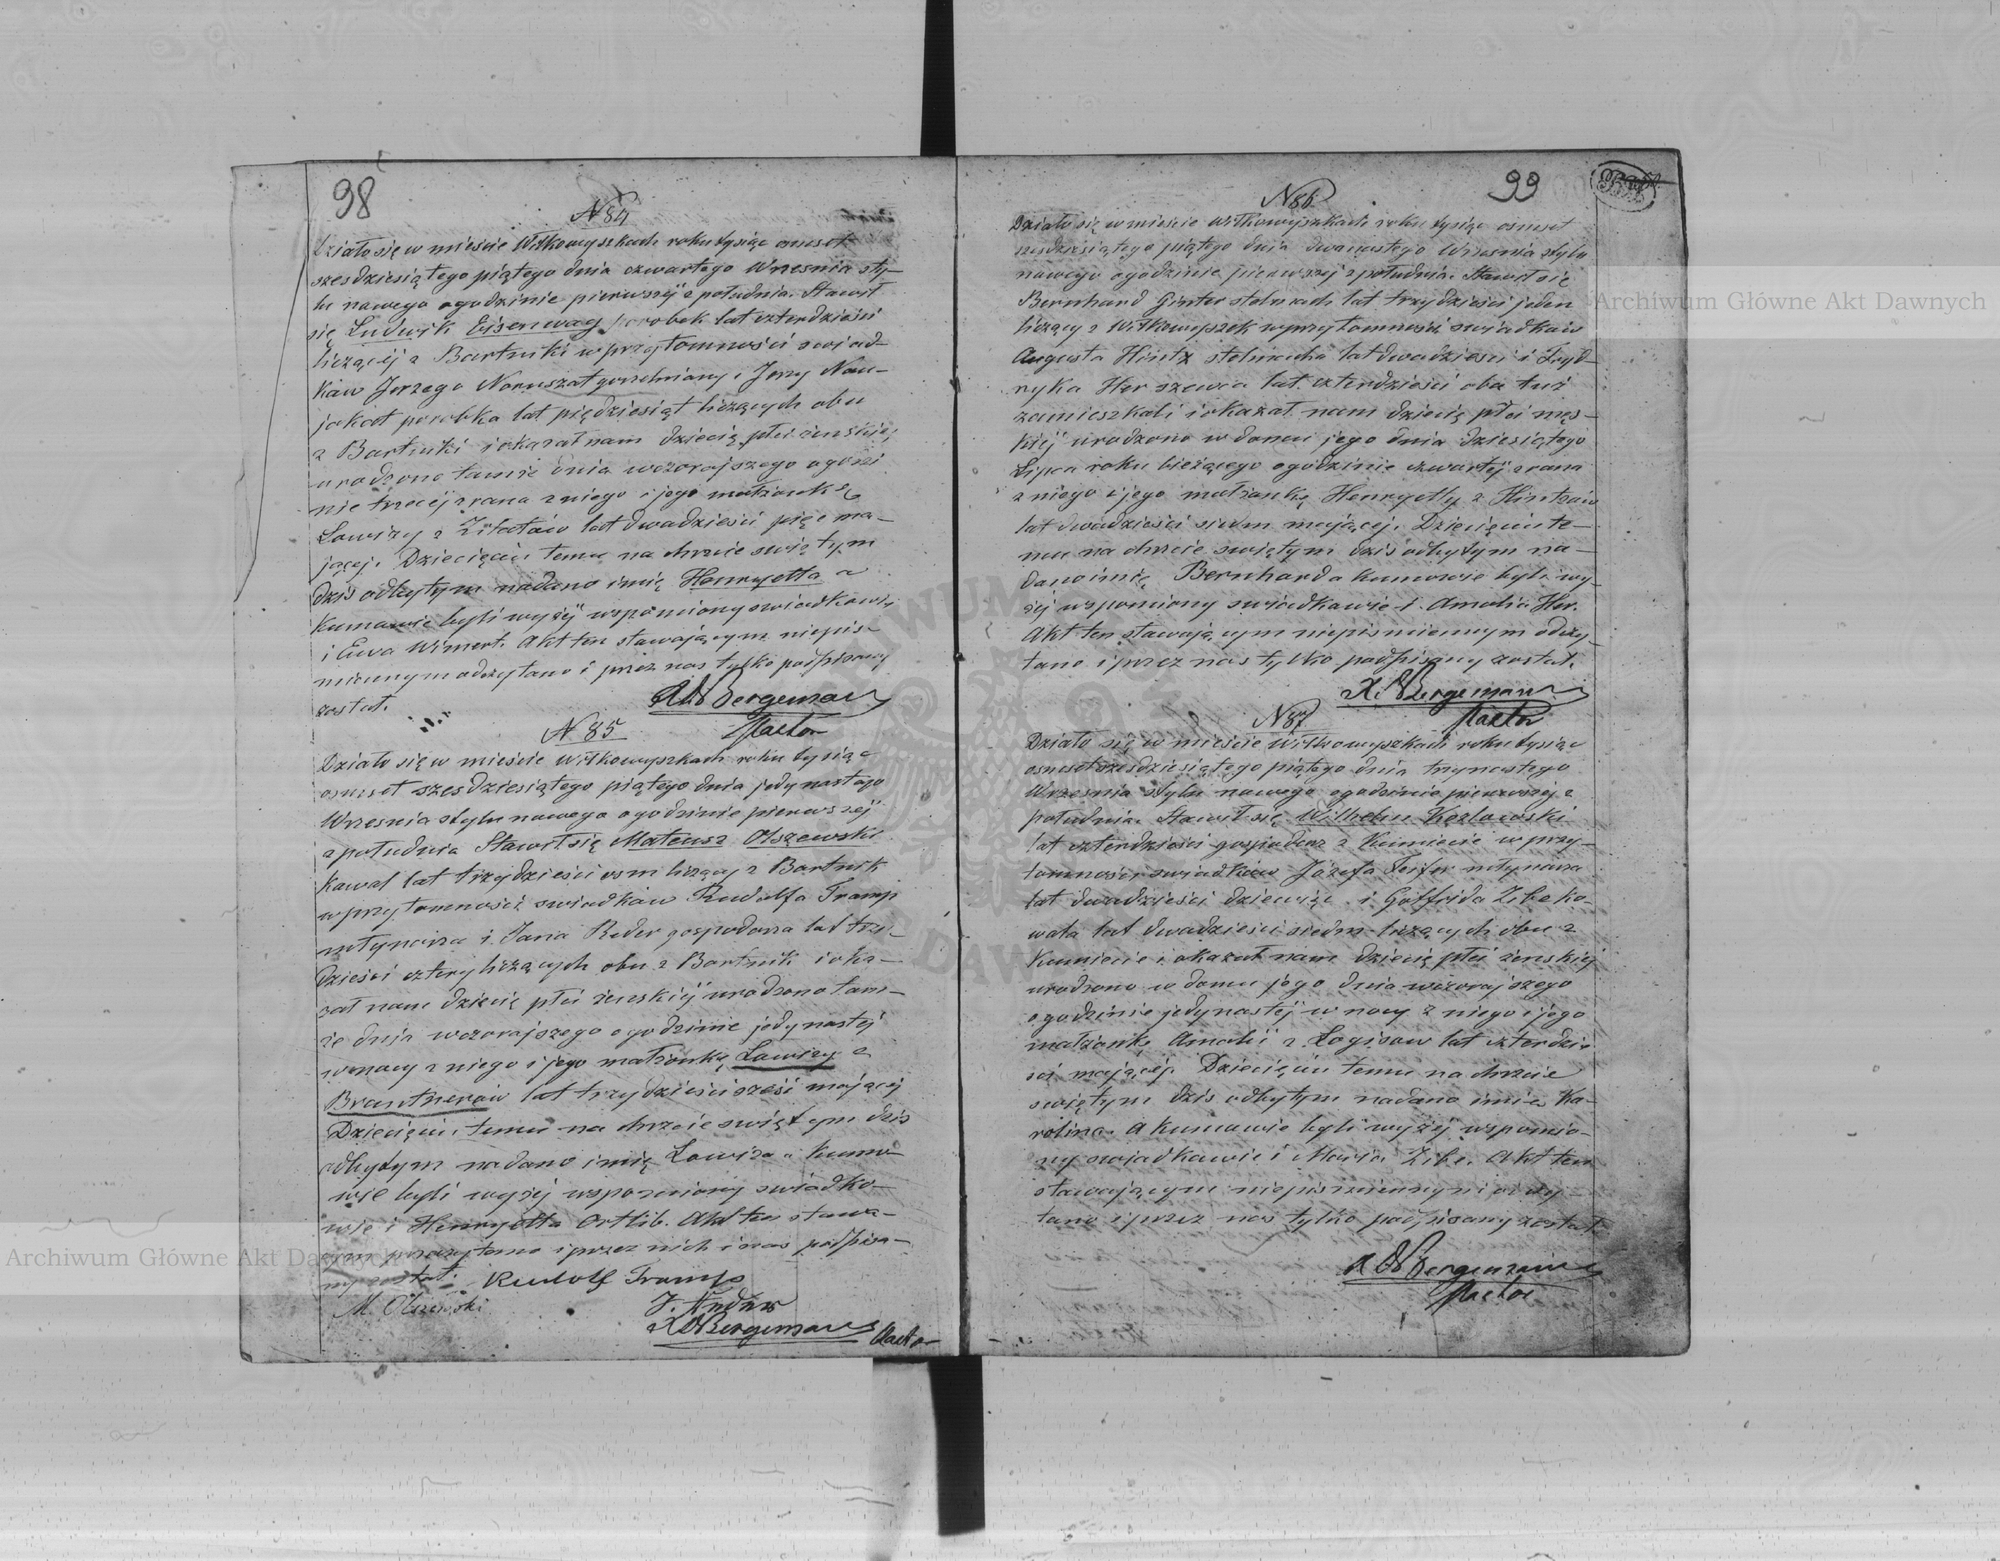 98
N 84
Działo się w mieście Wiłkowyszkach roku tysiąc osmset
szesdziesiątego piątego dnia czwartego Wrzesnia sty-
lu nowego o godzinie pierwszej z południa. Stawił
się Ludwik Eisenwag parobek lat czterdzieści
liczącéj z Bartniki w przytomności swiad-
ków Jerzego Noruszat gorzelniany i Jerzy Nau-
jokat parobka lat pięćdziesiąt liczących obu
z Bartniki i okazał nam dziecię płci żeńskiej
urodzone tamże dnia wczorajszego o godzi
nie trzeciéj z rana z niego i jego małżonki
Lowizy z lat dwadzieści pięc ma-
jącej. Dziecięciu temu na chrzcie swiętym
dzis odbytym nadano imię Henryetta a
Kumowie byli wyżéj wspomiony swiadkowie
i Ewa Wimert. Akt ten stawającym niepis-
miennym odczytano i przez nas tylko podpisany
został.
Bergemann
Pastor
N 85
Działo się w mieście Wiłkowyszkach roku tysiąc
osmset szesdziesiątego piątego dnia jedynastego
Wrzesnia stylu nowego o godzinie pierwszéj
z południa Stawił się Mateusz Olszewski
Kowal lat trzydzieści osm liczący z Bartnik
w przytomności swiadków Rudolfa Tramp
młynarza i Jana Reder gospodarza lat trzy-
dzieści cztery liczących obu z Bartnik i oka-
zał nam dziecię płci żenskiéj urodzono tam-
że dnia wczorajszego o godzinie jedynastéj
w nocy z niego i jego małżonkę Lowizy z
Brantnerów lat trzydzieści sześć mającéj
Dziecięciu temu na chrzcie swiętym dzis
odbytym nadano imię Lowiza a kumo-
wie byli wyżéj wspomniony swiadko-
wie i Henryetta Ortlib. Akt ten stawa-
przeczytano i przez nich i nas podpisa-
ny został. Rudolf Tramp
M. Olszewski
J. Reder
Bergemann Pastor
99
N 86
Działo się w mieście Wiłkowyszkach roku tysiąc osmset
szesdziesiątego piątego dnia dwanastego Wrzesnia stylu
nowego o godzinie pierwszej z południa. Stawił się
Bernhard Ginter stelmach lat trzydzieści jeden
liczący z Wiłkowyszek w przytomności swiadków
Augusta Hintz stelmacha lat dwadzieści i Fryd-
ryka Her szewca lat czterdzieści oba tuż
zamieszkali i okazał nam dziecię płci męs-
kiéj urodzono w domu jego dnia dziesiątego
Lipca roku bieżącego o godzinie czwartéj z rana
z niego i jego małżonkę Henryetty z Hintzów
lat dwadzieści siedm mającéj. Dziecięciu te-
mu na chrzcie swiętym dzis odbytym na-
dano imię Bernharda Kumowie byli wy-
żéj wspomiony swiadkowie i Amalia Her.
Akt ten stawającym niepismiennym odczy-
tano i przez nas tylko podpisany został.
Bergemann
Pastor
N 87
Działo się w mieście Wiłkowyszkach roku tysiąc
osmset szesdziesiątego piątego dnia trzynastego
Wrzesnia stylu nowego o godzinie pierwszej z
południa. Stawił się Wilhelm Kozlowski
lat czterdzieści gospodarz z Kumiecie w przy-
tomności swiadków Józefa Feifer młynarza
lat dwadzieści dziewięc i Gottfrida Zibe ko-
wala lat dwadzieści siedm liczących obu z
Kumiecie i okazał nam dziecię płci żenskiéj
urodzono w domu jego dnia wczorajszego
o godzinie jedynastéj w nocy z niego i jego
małżonkę Amalii z Logisow lat czterdzie
sci mającéj. Dziecięciu temu na chrzcie
swiętym dzis odbytym nadano imie Ka-
rolina. A kumowie byli wyżéj wspomio-
ny swiadkowie i Maria Zibe. Akt ten
stawającym niepismiennymi odczy-
tano i przez nas tylko podpisany został
Bergemann
Pastor
Archiwum Główne Akt Dawnych
Archiwum Główne Akt Dawnych